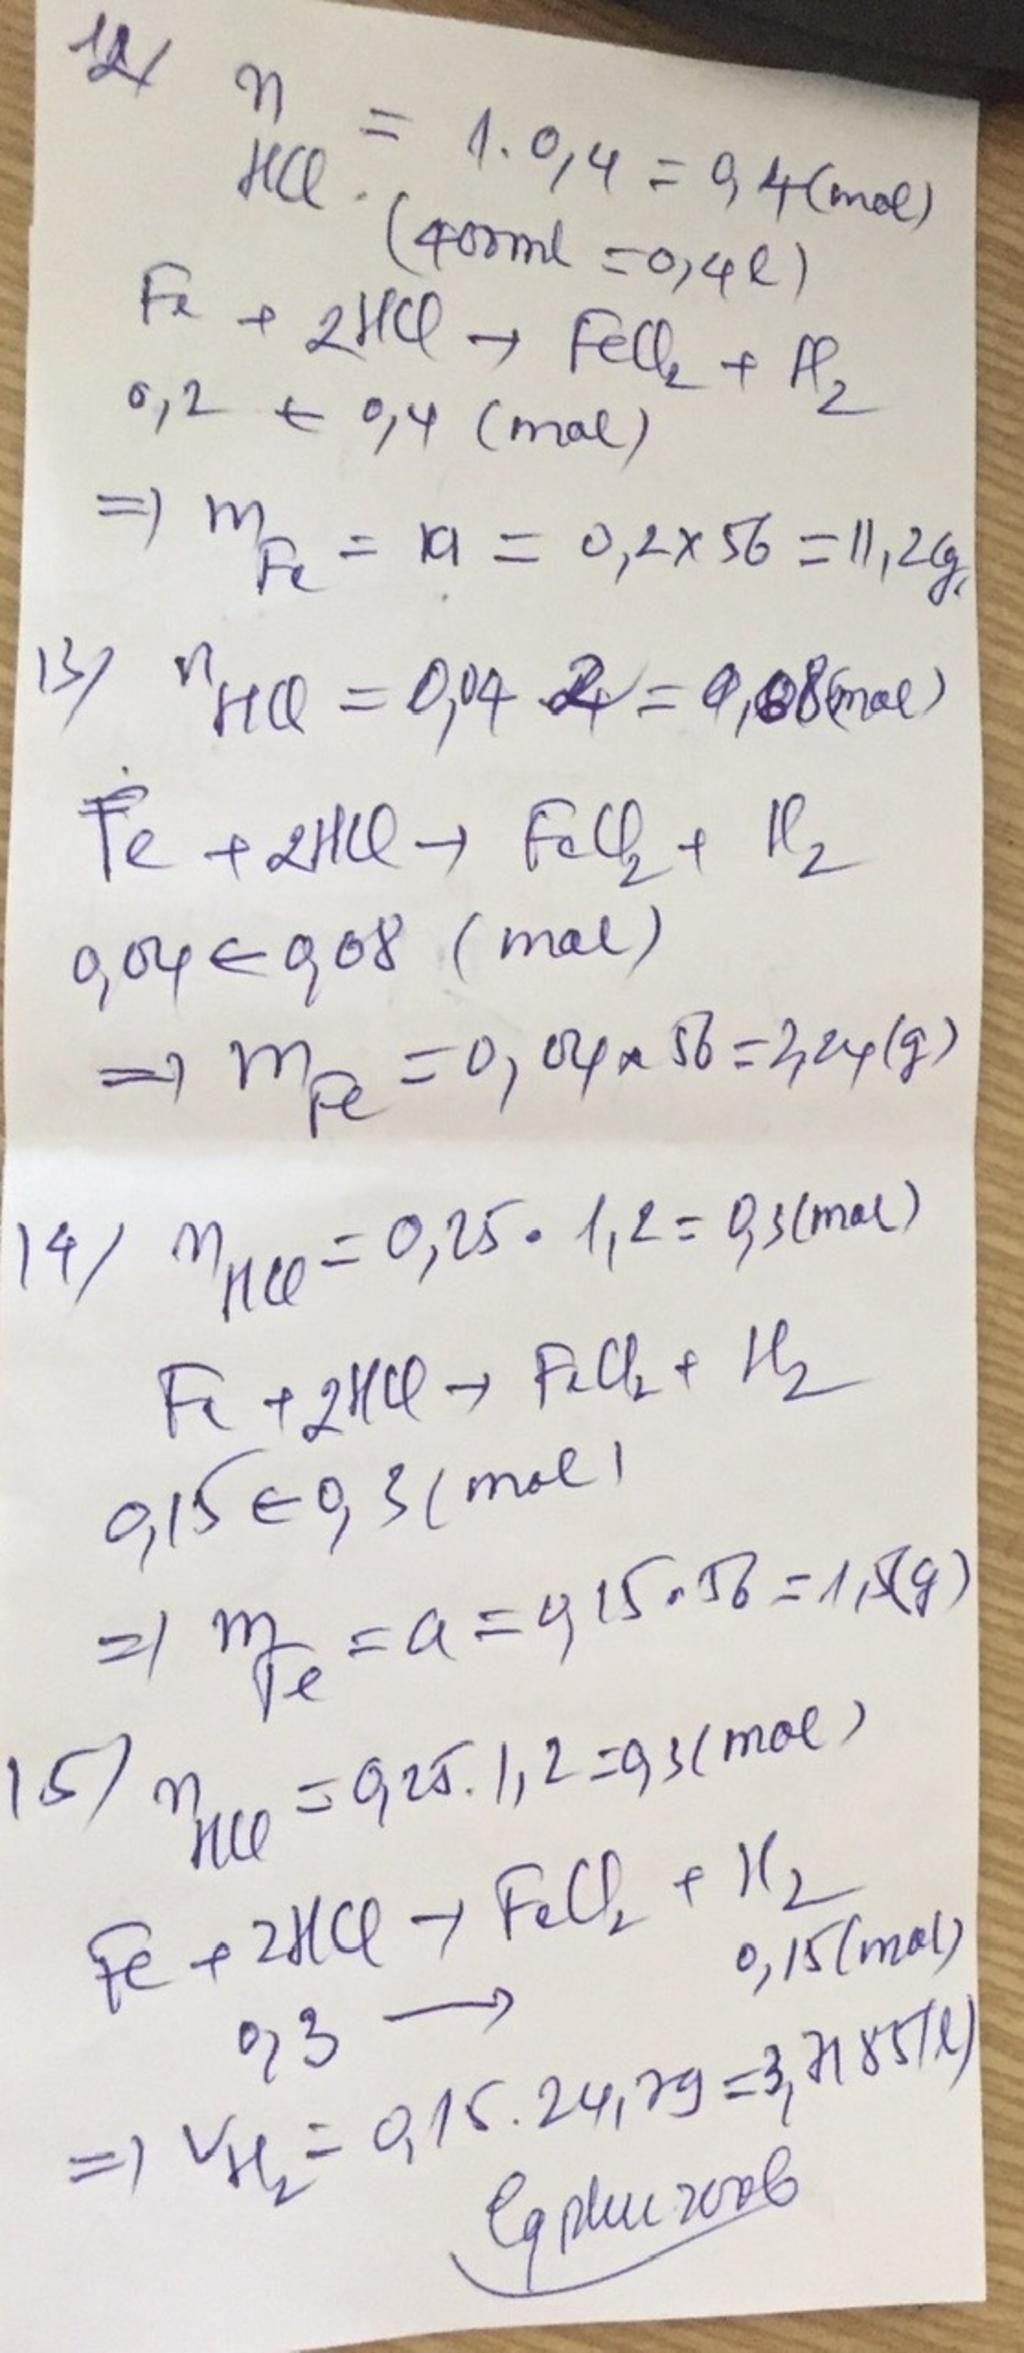 12/ nHCl = 1.0,4 = 0,4(mol)
(400ml = 0,4l)
Fe + 2HCl → FeCl2 + H2
0,2 ← 0,4 (mol)
=> mFe = a = 0,2 x 56 = 11,2(g)
13/ nHCl = 0,04 . 2 = 0,08(mol)
Fe + 2HCl → FeCl2 + H2
0,04 ← 0,08 (mol)
=> mFe = 0,04 x 56 = 2,24(g)
14/ nHCl = 0,25 . 1,2 = 0,3(mol)
Fe + 2HCl → FeCl2 + H2
0,15 ← 0,3 (mol)
=> mFe = a = 0,15 . 56 = (g)
15/ nHCl = 0,25 . 1,2 = 0,3(mol)
Fe + 2HCl → FeCl2 + H2
0,3 → 0,15(mol)
=> VH2 = 0,15 . 24,79 = 3,7185(l)